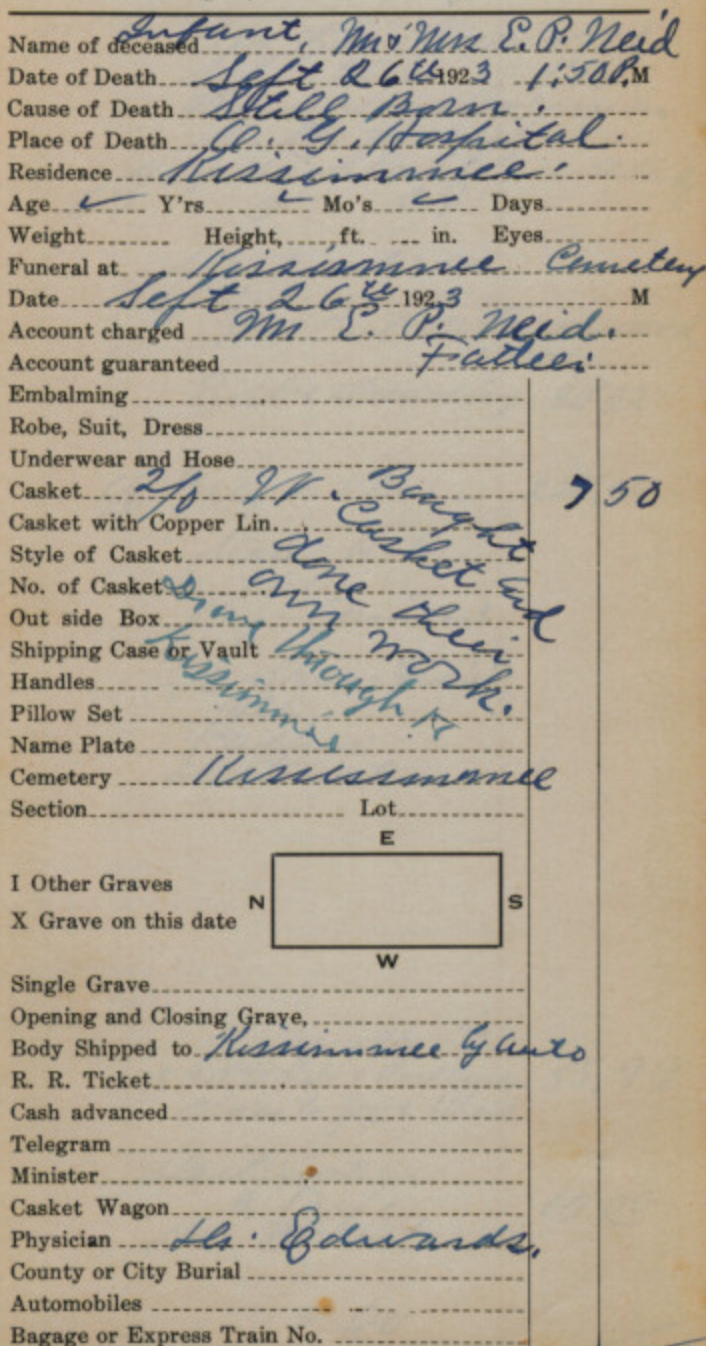 Name of deceased Infant, Mr & Mrs E. P. Neid
Date of Death Sept 26th 1923 1:50 P.M
Cause of Death Still Born.
Place of Death O. G. Hospital.
Residence Kissimmee.
Age ✓ Y'rs ✓ Mo's ✓ Days
Weight Height, ft. in. Eyes
Funeral at Kissismmee Cemetery
Date Sept 26th 1923 M
Account charged Mr E. P. Neid.
Account guaranteed Father.
Embalming
Robe, Suit, Dress
Underwear and Hose
Casket 2/0 W. 7 50
Bought
Casket and
done their
own work.
Casket with Copper Lin.
Style of Casket
No. of Casket
Out side Box
Shipping Case or Vault
through
Kissimmee
Handles
Pillow Set
Name Plate
Cemetery Kississmmee
Section Lot
E
I Other Graves
N S
X Grave on this date
W
Single Grave
Opening and Closing Grave,
Body Shipped to Kissimmee by auto
R. R. Ticket
Cash advanced
Telegram
Minister
Casket Wagon
Physician Dr. Edwards.
County or City Burial
Automobiles
Bagage or Express Train No.